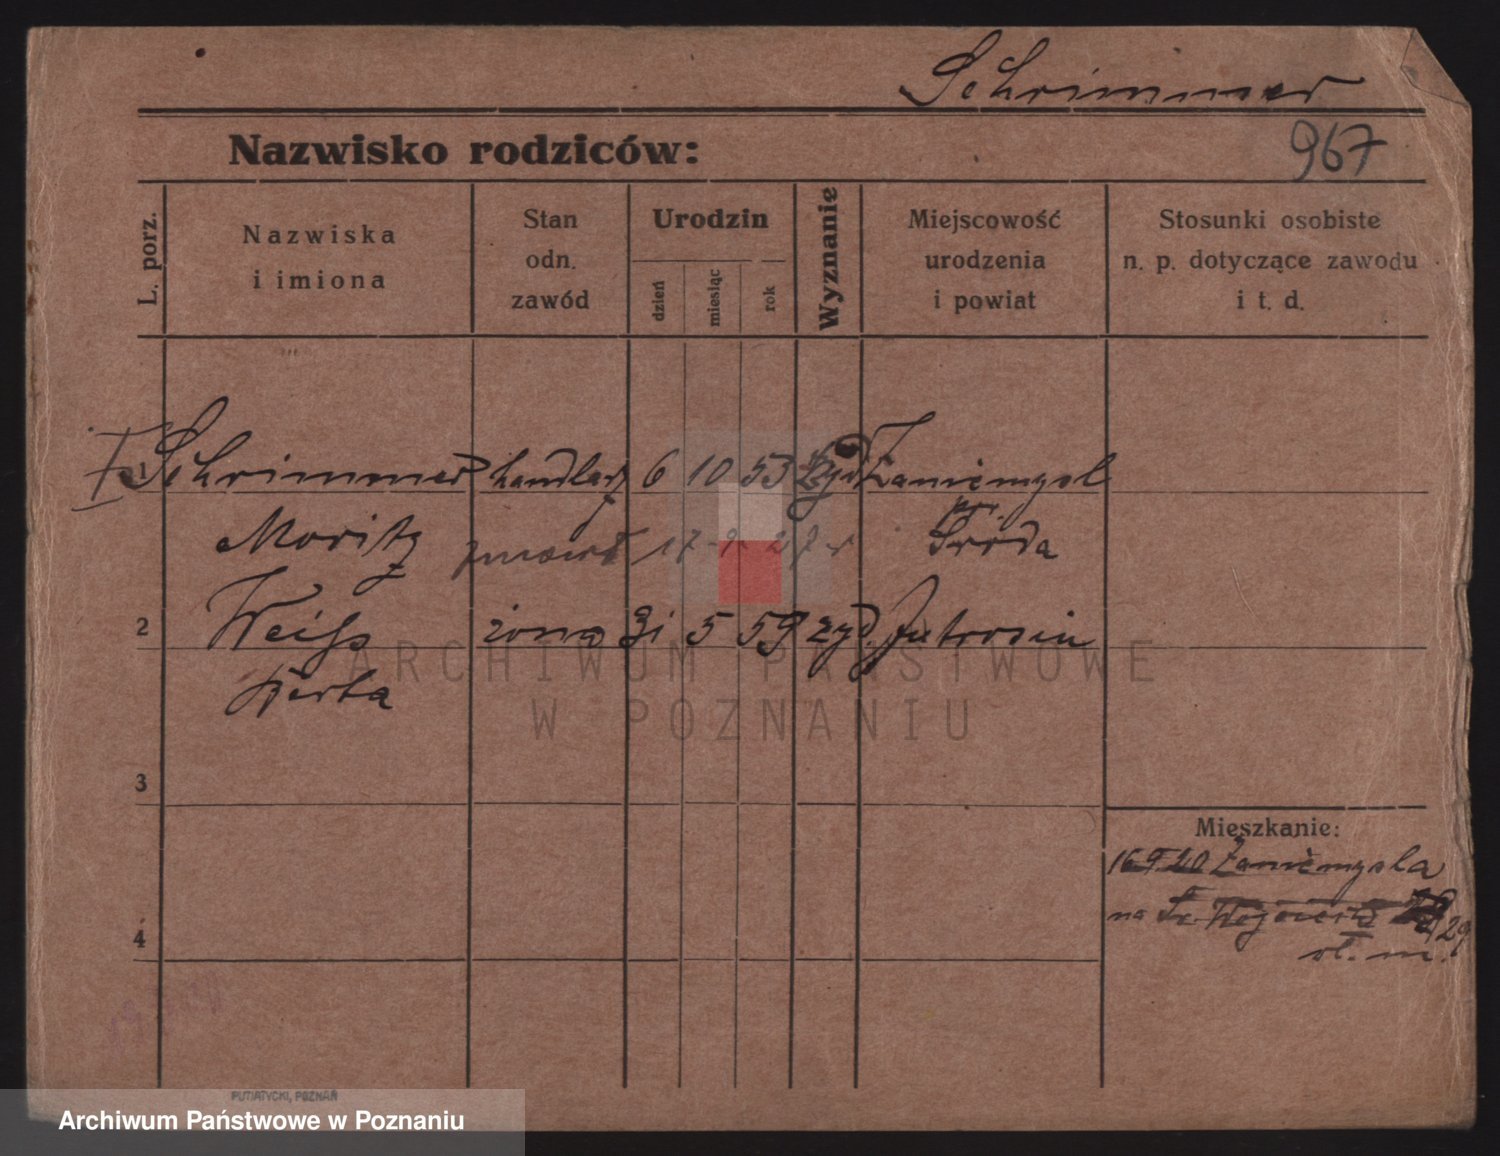 Schrimmer
Nazwisko rodziców:
967
L. porz.
Nazwiska
i imiona
Stan
odn.
zawód
Urodzin
dzień
miesiąc
rok
Wyznanie
Miejscowość
urodzenia
i powiat
Stosunki osobiste
n. p. dotyczące zawodu
i t. d.
1 Schrimmer handlarz 6 10 53 żyd Zaniemysl
Moritz zmarł 17 27 r pw. Środa
2 Weiss żona 31 5 59 żyd. Jutrosin
Berta
ARCHIWUM PAŃSTWOWE
W POZNANIU
3
Mieszkanie:
16 9 20 Zaniemysla
na Św. Wojciech 29
4
m.
PUTIATYCKI, POZNAŃ
Archiwum Państwowe w Poznaniu